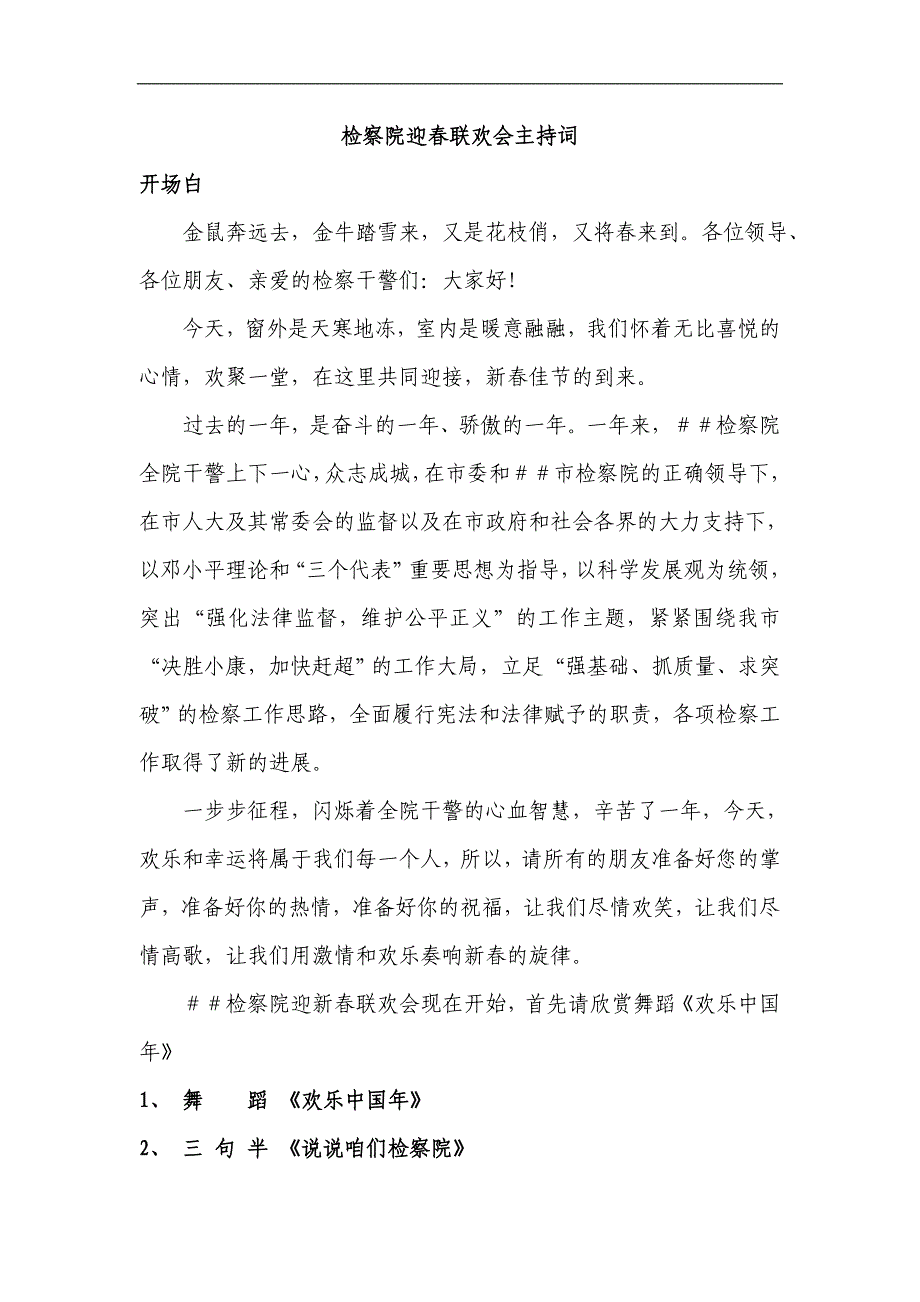 检察院迎春联欢会主持词
开场白
金鼠奔远去，金牛踏雪来，又是花枝俏，又将春来到。各位领导、
各位朋友、亲爱的检察干警们：大家好！
今天，窗外是天寒地冻，室内是暖意融融，我们怀着无比喜悦的
心情，欢聚一堂，在这里共同迎接，新春佳节的到来。
过去的一年，是奋斗的一年、骄傲的一年。一年来，＃＃检察院
全院干警上下一心，众志成城，在市委和＃＃市检察院的正确领导下，
在市人大及其常委会的监督以及在市政府和社会各界的大力支持下，
以邓小平理论和“三个代表”重要思想为指导，以科学发展观为统领，
突出“强化法律监督，维护公平正义”的工作主题，紧紧围绕我市
“决胜小康，加快赶超”的工作大局，立足“强基础、抓质量、求突
破”的检察工作思路，全面履行宪法和法律赋予的职责，各项检察工
作取得了新的进展。
一步步征程，闪烁着全院干警的心血智慧，辛苦了一年，今天，
欢乐和幸运将属于我们每一个人，所以，请所有的朋友准备好您的掌
声，准备好你的热情，准备好你的祝福，让我们尽情欢笑，让我们尽
情高歌，让我们用激情和欢乐奏响新春的旋律。
＃＃检察院迎新春联欢会现在开始，首先请欣赏舞蹈《欢乐中国
年》
1、 舞　　蹈 《欢乐中国年》
2、 三 句 半 《说说咱们检察院》